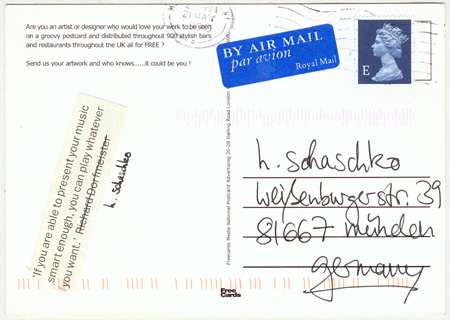 Are you an artist or designer who would love your work to be seen
on a groovy postcard and distributed throughout 900 stylish bars
and restaurants throughout the UK all for FREE ?
Send us your artwork and who knows.....it could be you !
BY AIR MAIL
par avion
Royal Mail
E
'If you are able to present your music
smart enough, you can play whatever
you want.' Richard Dorfmeister
h. schaschko
Freecards Media National Postcard Advertising 20-28 Dalling Road London
h. schaschko
weißenburgerstr. 39
81667 münchen
germany
Free
Cards